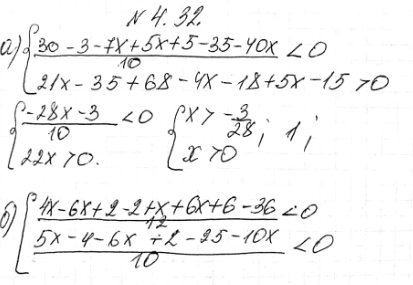 № 4.32.
а) { (30 - 3 - 7x + 5x + 5 - 35 - 40x)/10 < 0
21x - 35 + 68 - 4x - 18 + 5x - 15 > 0
{ (-28x - 3)/10 < 0 { x > -3/28 ; 1 ;
22x > 0. x > 0
б) { (4x - 6x + 2 - 2 + x + 6x + 6 - 36)/12 < 0
(5x - 4 - 6x + 2 - 25 - 10x)/10 < 0